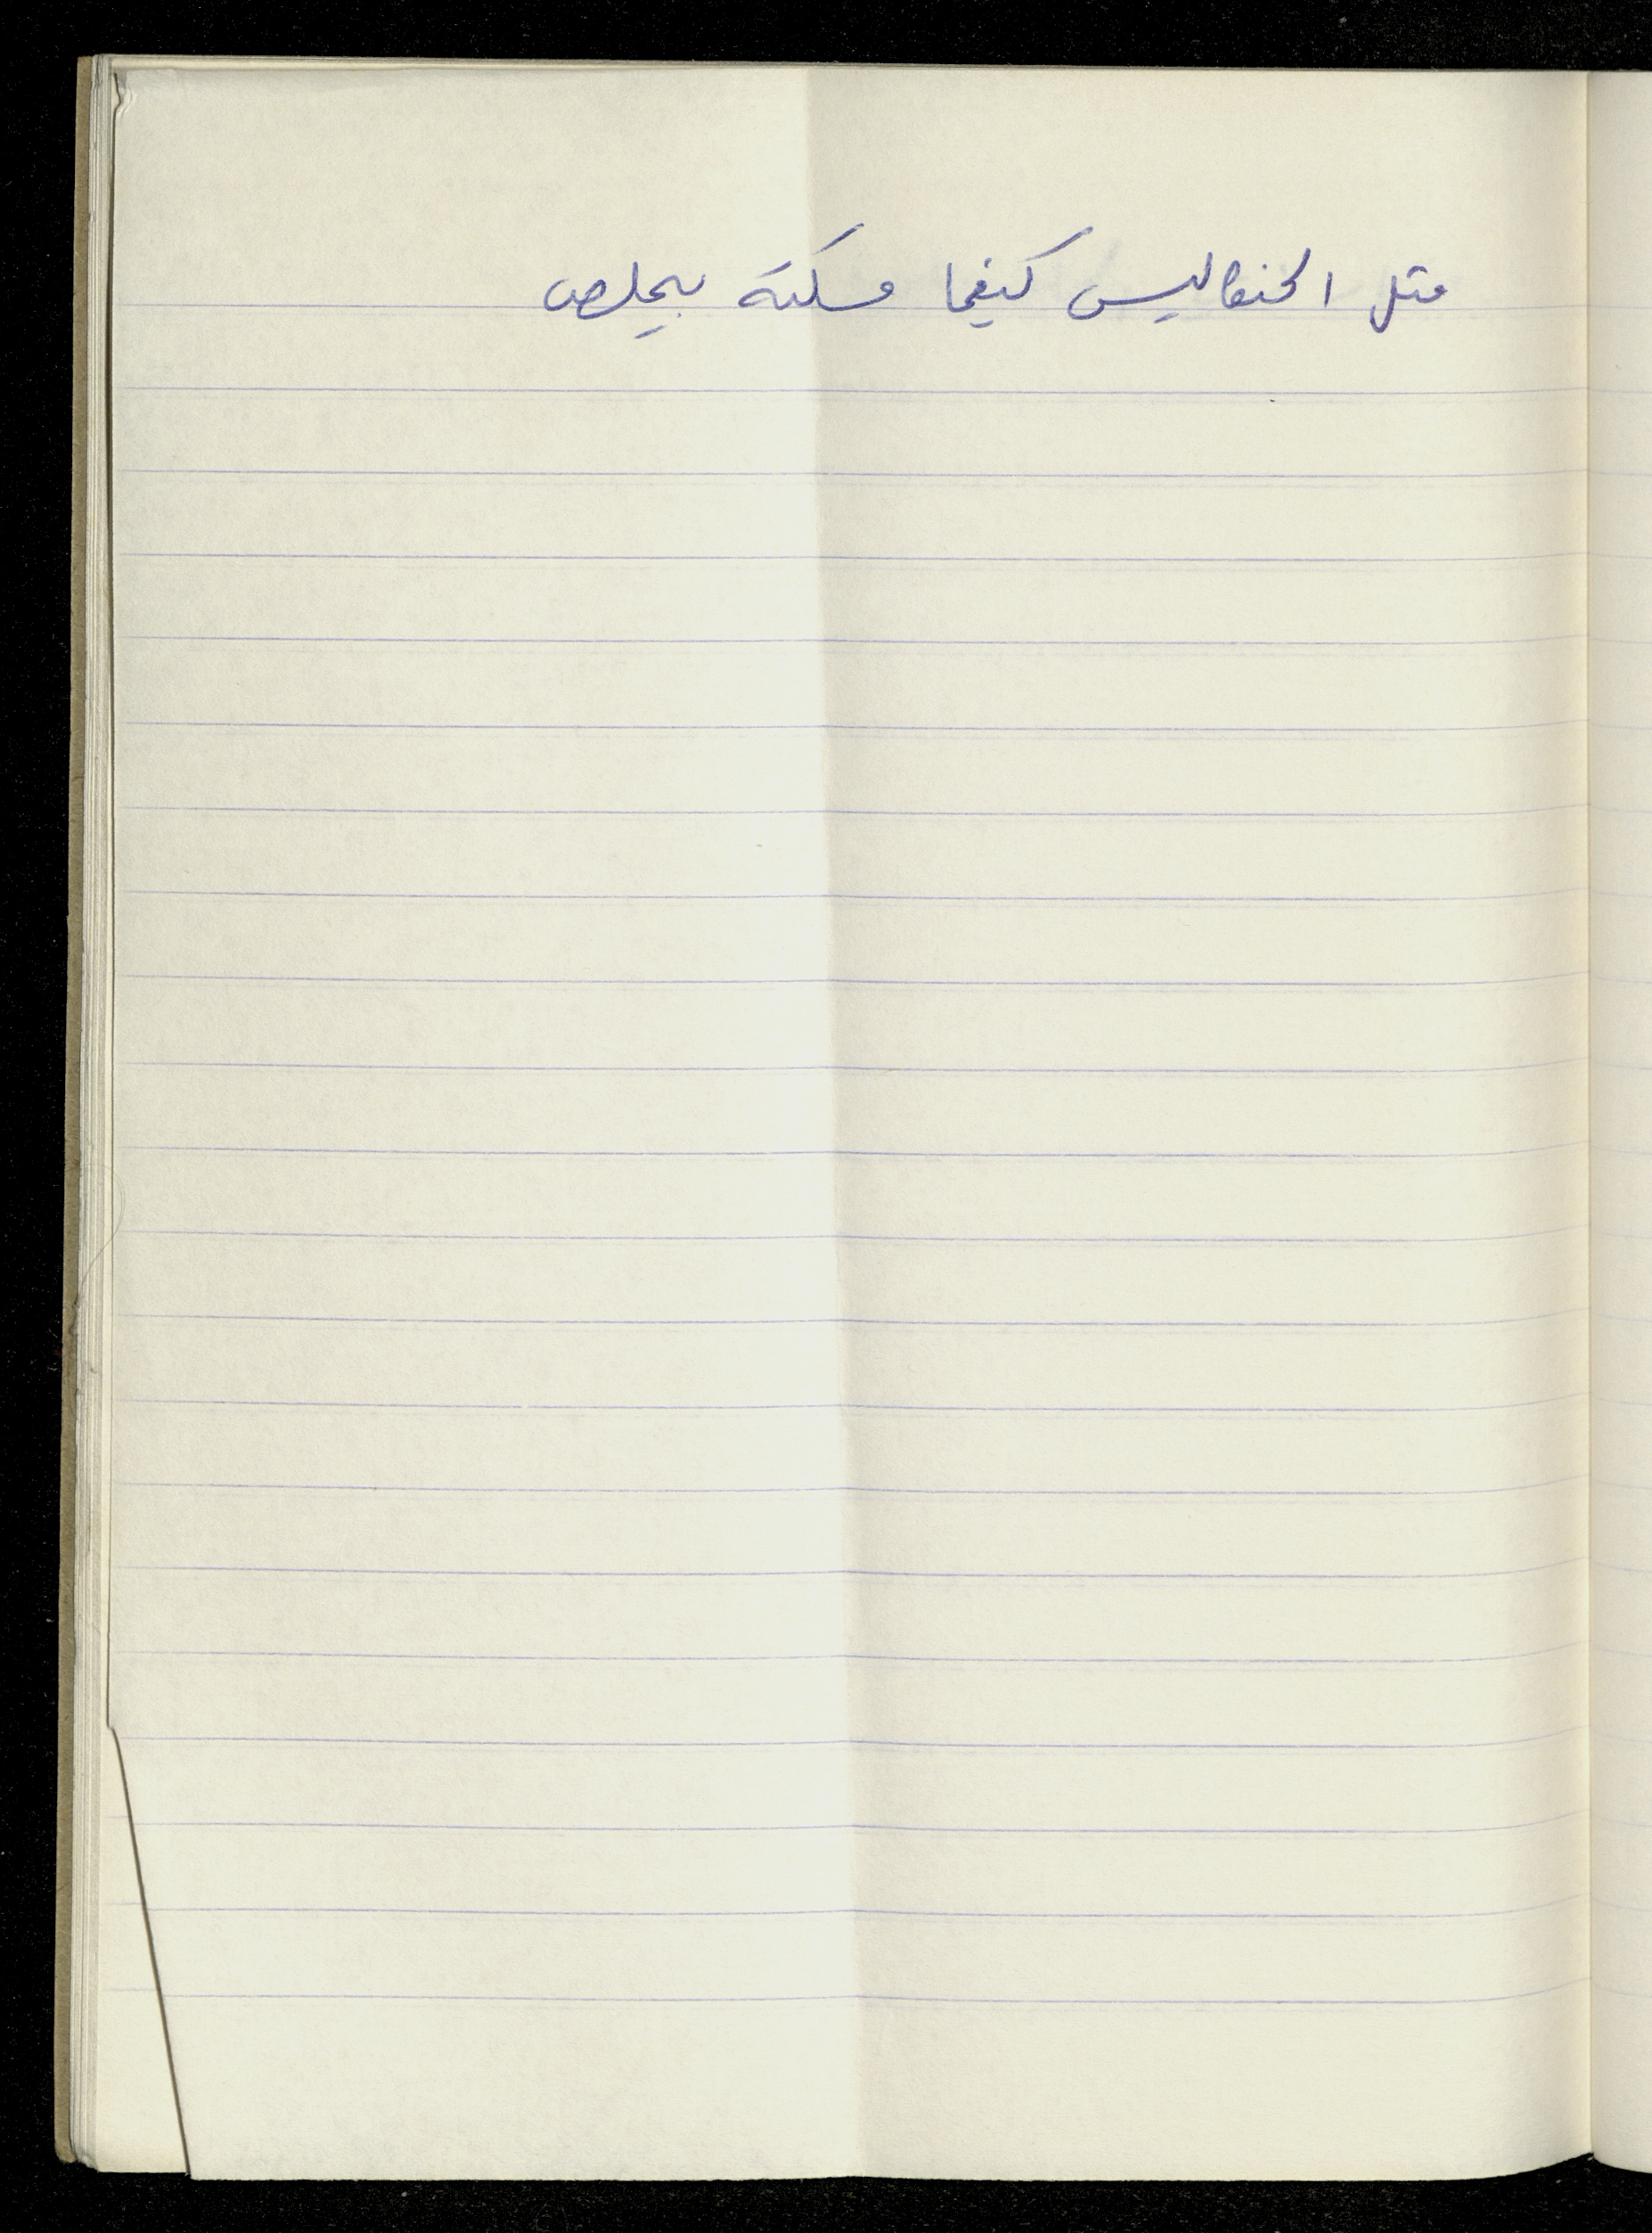 متل الحنقليس كيفما مسكته بيملص